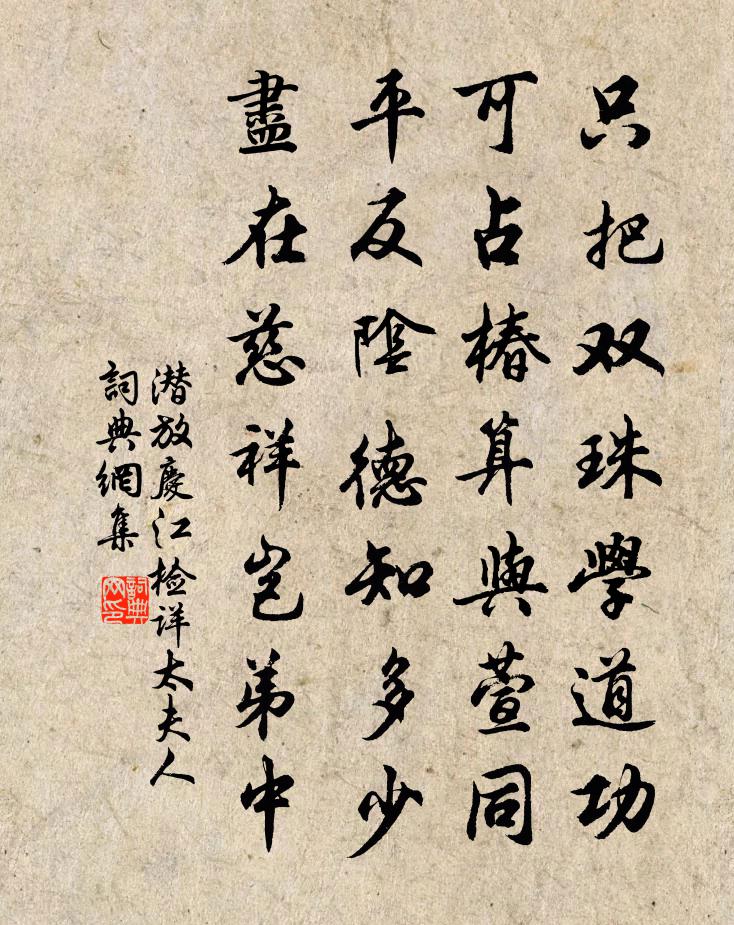 只把双珠學道功
可占椿算與萱同
平反陰德知多少
盡在慈祥岂弟中
潜放慶江检详太夫人
詞典網集
詞典
文印